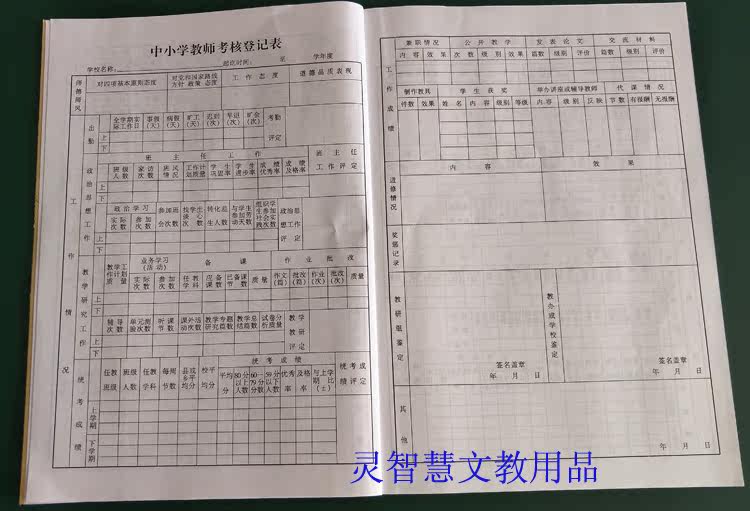 中小学教师考核登记表
学校名称： 起次时间： 至 学年度
师德师风
对四项基本原则态度 对党和国家路线方针 政策 态度 工作态度 道德品质表现
出勤
全学期实际工作日 事假(天) 病假(天) 旷工(天) 迟到(次) 早退(次) 旷会(次) 考勤评定
上
下
工作情况
政治思想工作
班主任工作
班级人数 家访次数 班风情况 工作计划质量 学生巩固率 学生进步率 成绩优秀率 成绩及格率 班主任工作评定
上
下
政治学习
实际次数 参加次数 参加班会次数 找学生谈心次数 转化差生人数 与学生参加劳动天数 组织学生参加社会实践次数 政治思想工作评定
上
下
教学研究工作
教学工作计划质量 业务学习(活动) 备课 作业批改
实际次数 参加次数 任教学科 应备课数 已备课节数 质量 作文(篇) 批改(篇) 作业(次) 批改(次) 质量
上
下
辅导次数 单元测验次数 听课节数 课外活动次数 教学专题研究篇数 教学总结篇数 试卷分析质量 教学教研评定
上
下
统考成绩
统考成绩
任教班级 班级人数 任教学科 每周节数 县或乡平均分 校平均分 平均分 80分以上人数 60—79分人数 59分以下人数 优秀率 及格率 与上学期比(±) 统考成绩评定
上学期
下学期
工作成绩
兼职情况 公开教学 发表论文 交流材料
内容 效果 次数 级别 效果 篇数 级别 评价 篇数 级别 评价
制作教具 学生获奖 举办讲座或辅导教师 代课情况
件数 效果 姓名 内容 级别 等级 内容 级别 反映 节数 有报酬 无报酬
进修情况
内容 效果
奖惩记录
教研组鉴定
签名盖章
年 月 日
教办或学校鉴定
签名盖章
年 月 日
其他
年 月 日
灵智慧文教用品